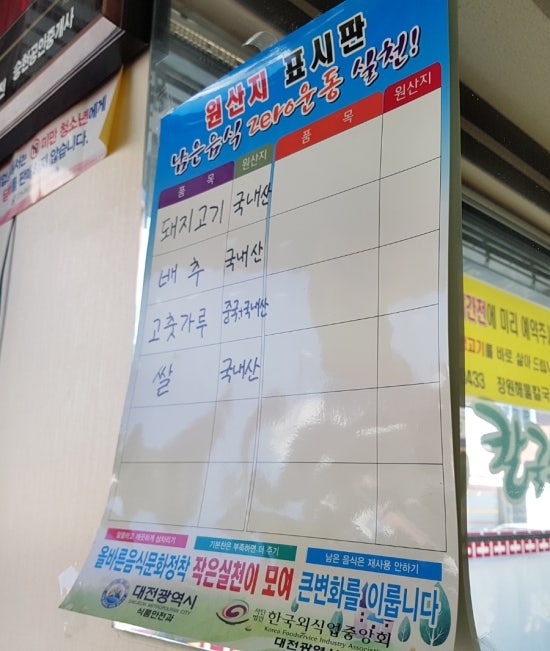 송현공인중개사
⑲ 미만 청소년에게
않습니다.
원산지 표시판
남은음식 zero운동 실천!
품 목 원산지 품 목 원산지
돼지고기 국내산
배추 국내산
고춧가루 중국,국내산
쌀 국내산
기본찬은 부족하면 더 주기
남은 음식은 재사용 안하기
올바른음식문화정착 작은실천이 모여 큰변화를 이룹니다
대전광역시
DAEJEON METROPOLITAN CITY
식품안전과
사단법인 한국외식업중앙회
Korea Foodservice Industry Association
대전광역시
간전에 미리 예약주
고기를 바로 삶아 드립니
433 장원해물칼국
칼국